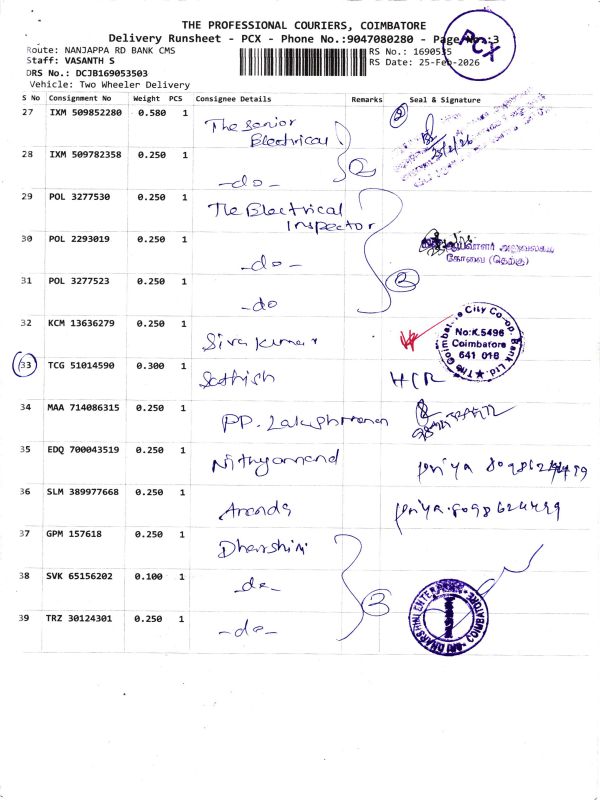 THE PROFESSIONAL COURIERS, COIMBATORE
Delivery Runsheet - PCX - Phone No.:9047080280 - Page No.:3
PCX
Route: NANJAPPA RD BANK CMS
RS No.: 1690535
Staff: VASANTH S
RS Date: 25-Feb-2026
DRS No.: DCJB169053503
Vehicle: Two Wheeler Delivery
S No Consignment No Weight PCS Consignee Details Remarks Seal & Signature
27 IXM 509852280 0.580 1 The Senior Electrical
25/2/26
28 IXM 509782358 0.250 1 -do-
2
29 POL 3277530 0.250 1 The Electrical Inspector
30 POL 2293019 0.250 1 -do-
கோவை (தெற்கு)
31 POL 3277523 0.250 1 -do
32 KCM 13636279 0.250 1 Siva Kumar
The Coimbatore City Co-op. Bank Ltd.
No:K.5496
Coimbatore
641 018
33 TCG 51014590 0.300 1 Sathish HCR
34 MAA 714086315 0.250 1 PP. Lakshmanan
35 EDQ 700043519 0.250 1 Nithyanand Priya
36 SLM 389977668 0.250 1 Ananda Priya. 8098624499
37 GPM 157618 0.250 1 Dharshini
38 SVK 65156202 0.100 1 -do-
3
39 TRZ 30124301 0.250 1 -do-
COIMBATORE